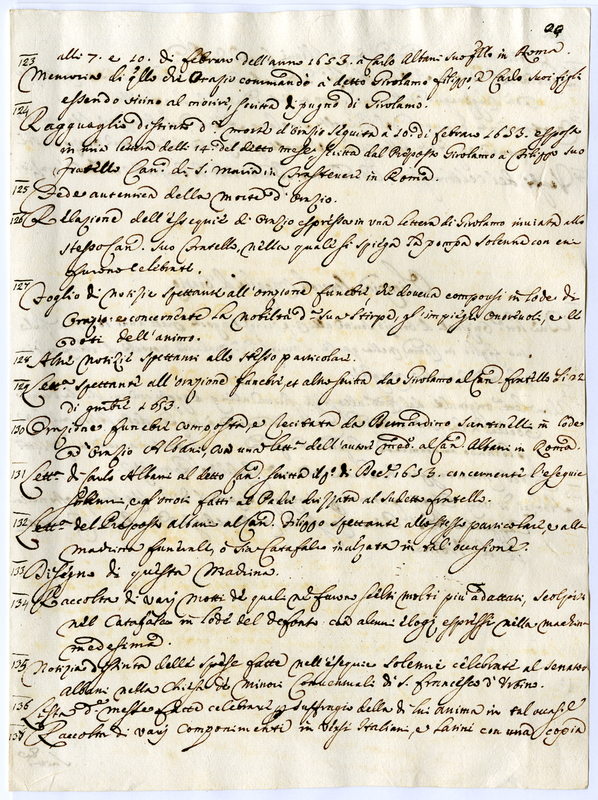 123 alli 7. e 10. di febraro dell'anno 1653. a Carlo Albani suo fr̃llo in Roma.
Memoria di q̃llo che Orazio commandò à detto Girolamo, Filippo, e Carlo suoi figli
essendo vicino al morire, scritta di pugno di Girolamo.
124 Ragguaglio distinto d'a morte d'Orazio seguita à 10. di febraro 1653. esposto
in una lettera delli 14. del detto mese scritta dal Preposto Girolamo à Filippo suo
fratello Can.co di S. Maria in Trastevere in Roma.
125 Fede autentica della Morte d'Orazio.
126 Relazione dell'essequie di Orazio espressa in una lettera di Girolamo inviata allo
stesso Can. suo fratello, nella quale si spiega la pompa solenne con cui
furono celebrate.
127 Foglio di notizie spettanti all'orazione funebre, che doveva comporsi in lode di
Orazio, e concernente la nobiltà d'a sua stirpe, gl'impieghi onorevoli, e le
doti dell'animo.
128 Altre notizie spettanti allo stesso particolare.
129 Lett.e spettanti all'orazione funebre, et altro scritta da Girolamo al Can. fratello li 22
di 1653.
130 Orazione funebre composta, e recitata da Bernardino Santinelli in lode
d'Orazio Albani, con una lett.a dell'autore med.o al Can. Albani in Roma.
131 Lett.a di Carlo Albani al detto Can. scritta il p.o di Dec.e 1653. concernente l'esequie
solenni, e gl'onori fatti al Padre avvisata al sudetto fratello.
132 Lett.a del Preposto Albani al Can. Filippo spettante allo stesso particolare, e alla
machina funerale, ò sia Catafalco inalzata in tal'occasione.
133 Disegno di questa Machina.
134 Raccolta di varij motti de quali ne furono scelti molti più adattati, e scolpiti
nel Catafalco in lode del defonto con alcuni elogi espressi nella machina
medesima.
135 Notizia distinta delle spese fatte nell'esequie solenni celebrate al senator
Albani nella Chiesa de Minori Conventuali di S. Francesco d'Urbino.
136 Lista d'e messe fatte celebrare in suffragio della di lui anima in tal occas.e
137 Raccolta di varij componimenti in versi Italiani, e Latini con una copia